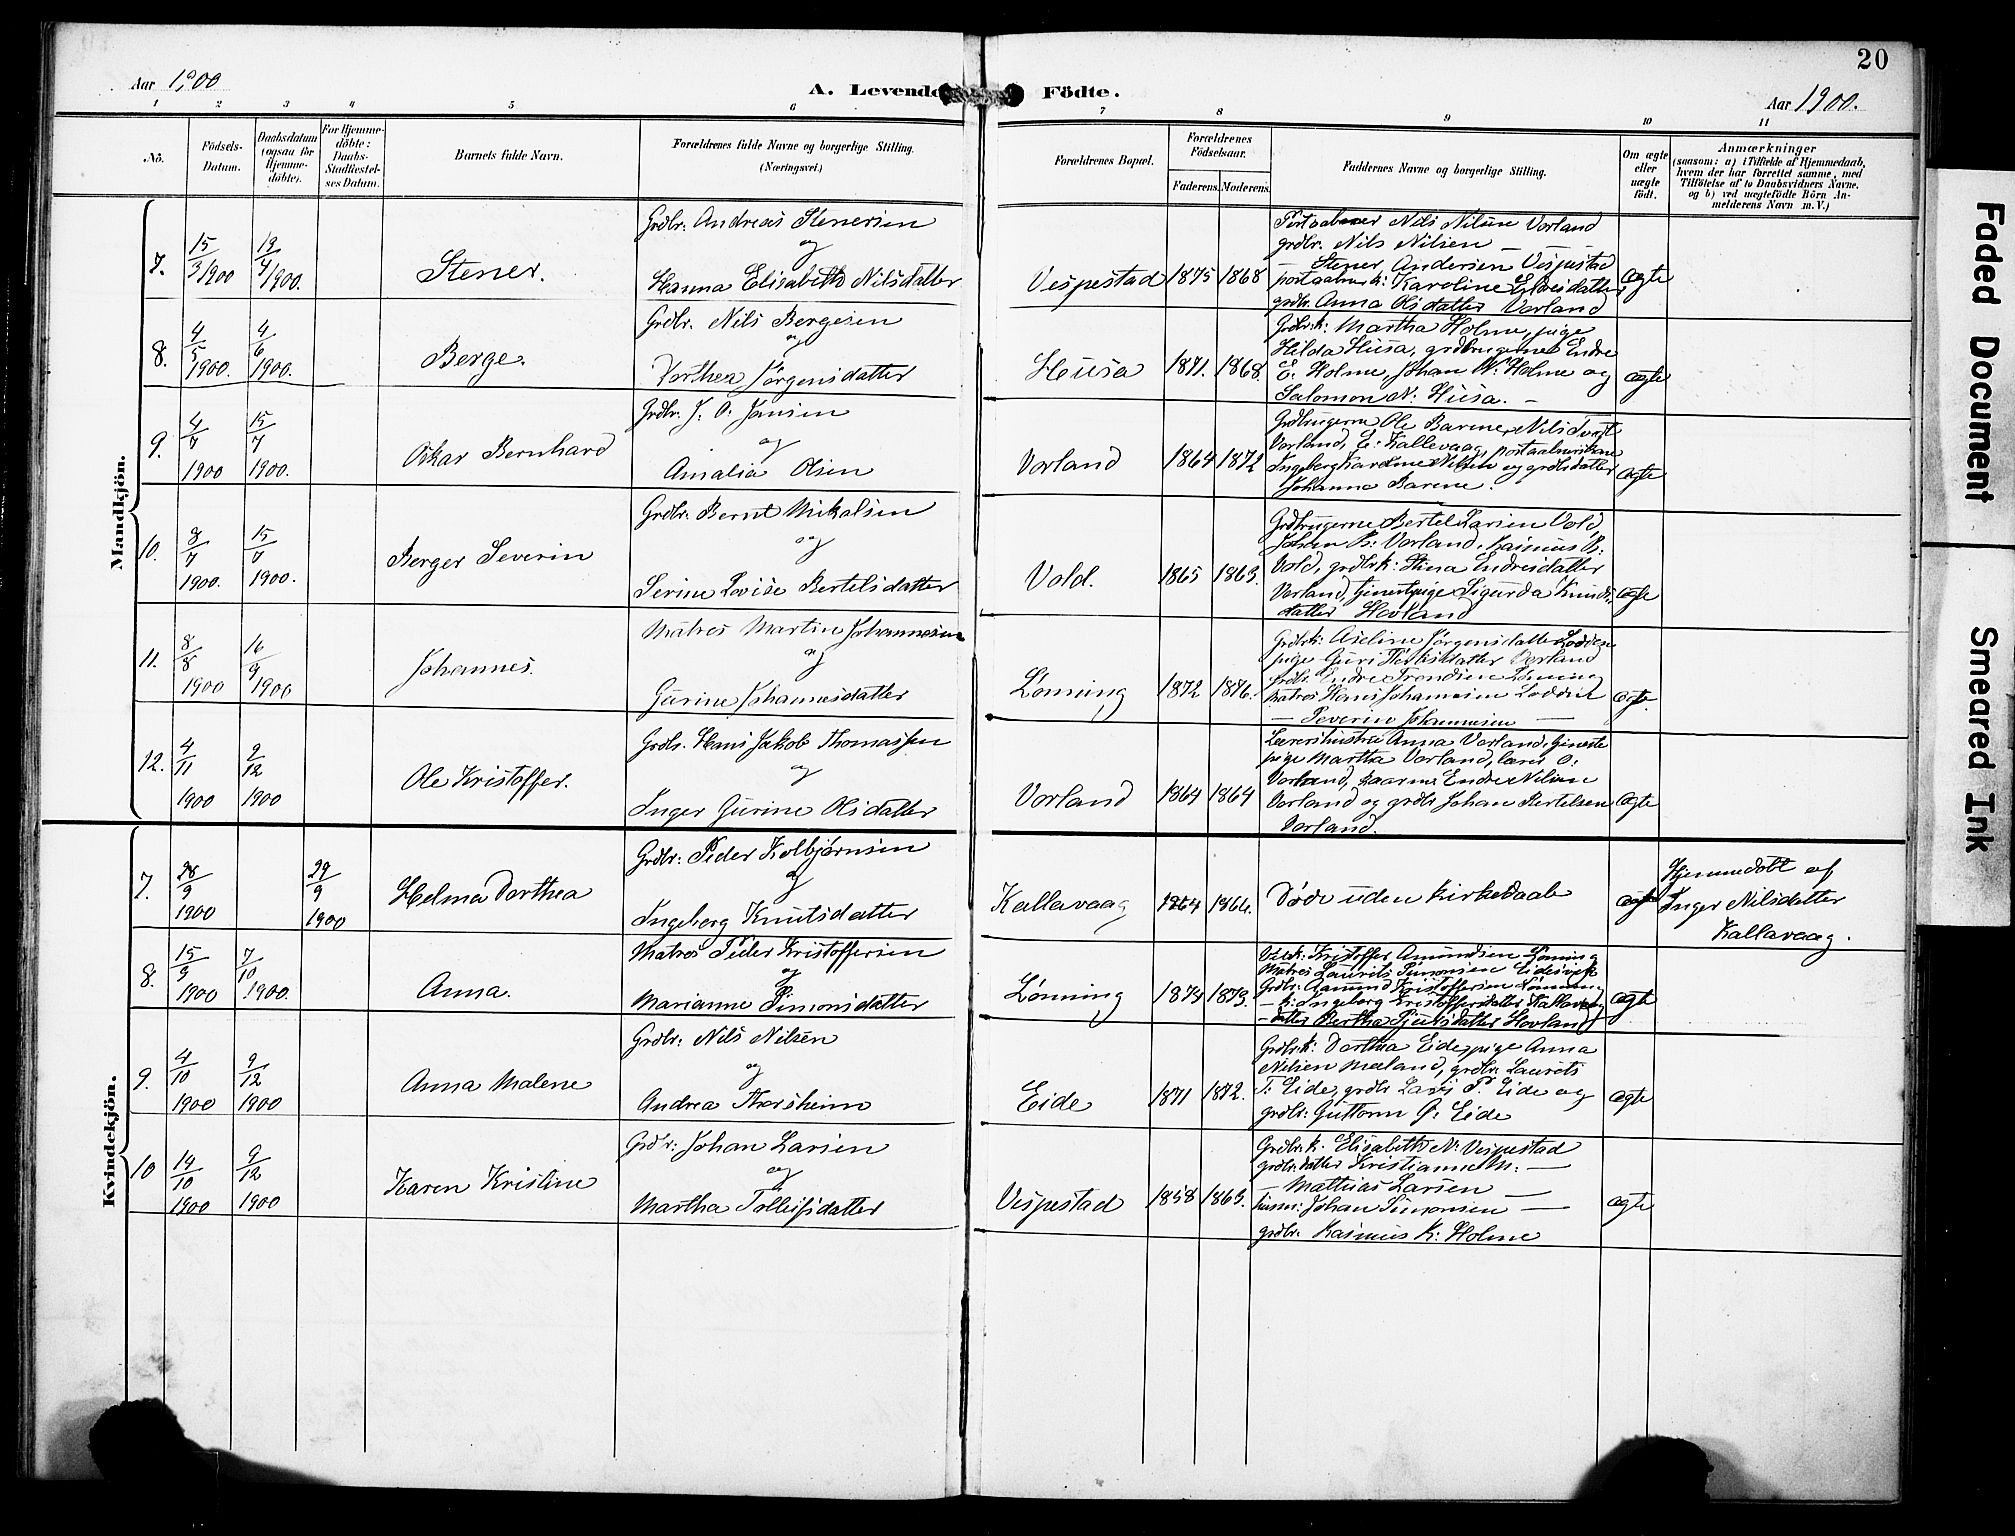 20
Aar 1900
A. Levende Födte.
Aar 1900.
1 2 3 4 5 6 7 8 9 10 11
No.
Födsels-Datum.
Daabsdatum (ogsaa for Hjemme-döbte).
For Hjemme-döbte: Daabs-Stadfæstel-ses Datum.
Barnets fulde Navn.
Forældrenes fulde Navne og borgerlige Stilling.
(Næringsvei.)
Forældrenes Bopæl.
Forældrenes Födselsaar.
Faderens. Moderens.
Faddernes Navne og borgerlige Stilling.
Om ægte eller uægte födt.
Anmærkninger
(saasom: a) i Tilfælde af Hjemmedaab, hvem der har forrettet samme, med Tilföielse af to Daabsvidners Navne, og b) ved uægtefödte Börn An-melderens Navn m. V.)
Mandkjön.
7. 15/3 1900 19/4 1900. Stener.
Grdbr. Andreas Stenersen
og
Hanna Elisabeth Nilsdatter
Vespestad 1875 1868
Nils Nilsen Vorland
grdbr. Nils Nilsen —
— Stener Andersen Vespestad
Karoline
grdbr. Anna Olsdatter Vorland
ægte
8. 4/5 1900. 4/6 1900. Berge.
Grdbr. Nils Bergesen
og
Dorthea Jørgensdatter
Husa 1871. 1868.
Grdbr.k. Martha Holme, pige
Hilda Husa, grdbrugerne Endre
E. Holme, Johan W. Holme og
Salomon N. Husa. —
ægte
9. 4/7 1900 15/7 1900. Oskar Bernhard
Grdbr. J. O. Jansen
og
Amalia Olsen
Vorland 1864 1872
Grdbrugerne Ole Barene, Nils
Vorland, E. Kallevaag,
Nilsen og
Johanna Barene.
ægte
10. 8/7 1900. 15/7 1900. Berger Severin
Grdbr. Bernt Mikalsen
og
Serine Lovise Bertelsdatter
Vold. 1865 1863.
Grdbrugerne Bertel Larsen Vold,
Johan B. Vorland, Rasmus B.
Vold, grdbr.k. Stina Endresdatter
Vorland, tjenestpige Sigurda Knuds-
datter Hovland
ægte
11. 8/8 1900 16/9 1900 Johannes.
Matros Martin Johannesen
og
Gurine Johannesdatter
Lønning 1872 1876.
Grdbr.k. Aseline Jørgensdatter
pige Guri Vorland
grdbr. Endre Trondsen Lønning
Matros Hans Johannesen
— Severin Johannesen —
ægte.
12. 4/11 1900 2/12 1900 Ole Kristoffer.
Grdbr. Hans Jakob Thomassen
og
Inger Gurine Olsdatter
Vorland 1864 1864
Lærershustru Anna Vorland, tjeneste
pige Martha Vorland, lærer O.
Vorland, Endre Nilsen
Vorland og grdbr Johan Bertelsen
Vorland.
ægte
Kvindekjön.
7. 28/9 1900 29/9 1900 Helma Dorthea
Grdbr. Peder Kolbjørnsen
og
Ingeborg Knutsdatter
Kallavaag 1864 1864.
Døde uden kirkedaab
ægte
Hjemmedøbt af
Inger Nilsdatter
Kallavaag.
8. 15/9 1900 7/10 1900. Anna.
Matros Peder Kristoffersen
og
Marianne Simonsdatter
Lønning 1874 1873.
Kristoffer Amundsen Lønning
Matros Laurits Simonsen Eidesvik
Grdbr. Aamund Kristoffersen Lønning
— k. Ingeborg Kristoffersdatter Kallavaag
— datter Bertha Sjursdatter Hovland
ægte
9. 4/10 1900 9/12 1900 Anna Malene
Grdbr. Nils Nilsen
og
Andrea Thorsheim
Eide 1871 1872.
Grdbr.k. Dorthea Eide, pige Anna
Nilsen Mæland, grdbr. Laurits
T. Eide, grdbr Lars P. Eide og
grdbr. Guttorm G. Eide
ægte
10 14/10 1900 9/12 1900 Karen Kristine
Grdbr. Johan Larsen
og
Martha Tolleifsdatter
Vespestad 1858 1863.
Grdbr.k. Elisabeth N. Vespestad
grdbr. datter Kristianne M. —
— Mathias Larsen —
husm. Johan Simonsen —
grdbr. Rasmus K. Holme
ægte
Faded Document
Smeared Ink